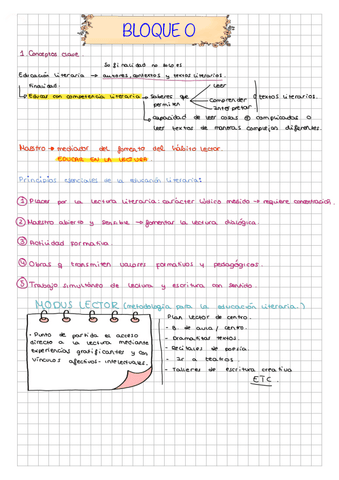 BLOQUE 0
1. Conceptos clave
Su finalidad no solo es
Educación literaria → autores, contextos y textos literarios.
Finalidad:
↳ Educar con competencia literaria → Saberes que permiten
Leer
Comprender
Interpretar
textos literarios.
capacidad de leer cosas + complicadas o
leer textos de maneras complejas diferentes.
Maestro → mediador del fomento del hábito lector.
EDUCAR EN LA LECTURA.
Principios esenciales de la educación literaria:
① Placer por la lectura literaria: carácter lúdico medido → requiere concentración.
② Maestro abierto y sensible → fomentar la lectura dialógica.
③ Actividad formativa.
④ Obras q transmiten valores formativos y pedagógicos.
⑤ Trabajo simultáneo de lectura y escritura con sentido.
MODUS LECTOR (metodología para la educación literaria.)
- Punto de partida el acceso
directo a la lectura mediante
experiencias gratificantes y con
vínculos afectivos-intelectuales.
Plan Lector de centro.
- B. de aula / centro.
- Dramatizar textos.
- Recitales de poesía.
- Ir a teatros
- Talleres de escritura creativa
ETC.